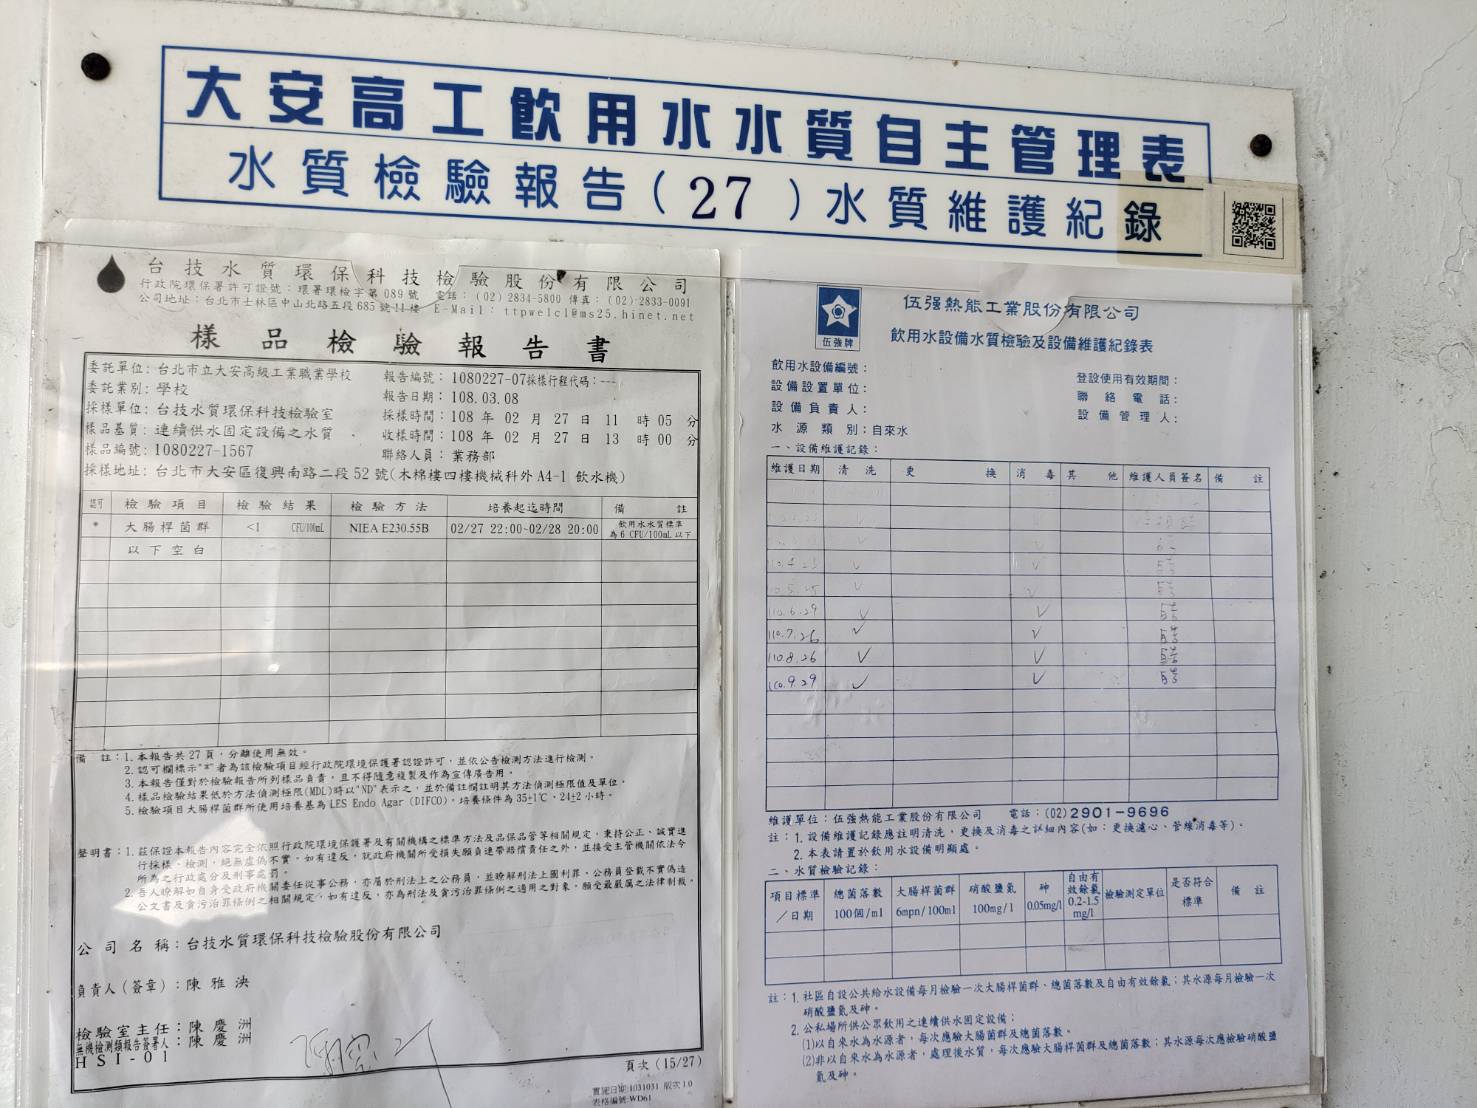 大安高工飲用水水質自主管理表
水質檢驗報告(27)水質維護紀錄
台技水質環保科技檢驗股份有限公司
行政院環保署許可證號:環署環檢字第089號 電話:(02)2834-5800 傳真:(02)2833-0091
公司地址:台北市士林區中山北路五段685號11樓 E-Mail: ttpwelcl@ms25.hinet.net
樣品檢驗報告書
委託單位:台北市立大安高級工業職業學校 報告編號:1080227-07採樣行程代碼:---
委託業別:學校 報告日期:108.03.08
採樣單位:台技水質環保科技檢驗室 採樣時間:108年02月27日11時05分
樣品基質:連續供水固定設備之水質 收樣時間:108年02月27日13時00分
樣品編號:1080227-1567 聯絡人員:業務部
採樣地址:台北市大安區復興南路二段52號(木棉樓四樓機械科外A4-1飲水機)
認可 檢驗項目 檢驗結果 檢驗方法 培養起迄時間 備註
* 大腸桿菌群 <1 CFU/100mL NIEA E230.55B 02/27 22:00~02/28 20:00 飲用水水質標準
為6 CFU/100mL以下
以下空白
備 註:1.本報告共27頁,分離使用無效。
2.認可欄標示"*"者為該檢驗項目經行政院環境保護署認證許可,並依公告檢測方法進行檢測。
3.本報告僅對於檢驗報告所列樣品負責,且不得隨意複製及作為宣傳廣告用。
4.樣品檢驗結果低於方法偵測極限(MDL)時以"ND"表示之,並於備註欄註明其方法偵測極限值及單位。
5.檢驗項目大腸桿菌群所使用培養基為LES Endo Agar (DIFCO),培養條件為35±1℃、24±2小時。
聲明書:1.茲保證本報告內容完全依照行政院環境保護署及有關機構之標準方法及品保品管等相關規定,秉持公正、誠實進
行採樣、檢測,絕無虛偽不實,如有違反,就政府機關所受損失願負連帶賠償責任之外,並接受主管機關依法令
所為之行政處分及刑事處罰。
2.吾人瞭解如自身受政府機關委任從事公務,亦屬於刑法上之公務員,並瞭解刑法上圖利罪、公務員登載不實偽造
公文書及貪污治罪條例之相關規定,如有違反,亦為刑法及貪污治罪條例之適用之對象,願受最嚴厲之法律制裁。
公司名稱:台技水質環保科技檢驗股份有限公司
負責人(簽章):陳雅泱
檢驗室主任:陳慶洲
無機檢測類報告簽署人:陳慶洲
HSI-01
頁次(15/27)
實施日期:1031031 版次1.0
表格編號:WD61
伍強牌
伍强熱能工業股份有限公司
飲用水設備水質檢驗及設備維護紀錄表
飲用水設備編號: 登設使用有效期間:
設備設置單位: 聯絡電話:
設備負責人: 設備管理人:
水源類別:自來水
一、設備維護記錄:
維護日期 清洗 更換 消毒 其他 維護人員簽名 備註
110.6.29 ✓ ✓
110.7.26 ✓ ✓
110.8.26 ✓ ✓
110.9.29 ✓ ✓
維護單位:伍強熱能工業股份有限公司 電話:(02)2901-9696
註:1.設備維護記錄應註明清洗、更換及消毒之詳細內容(如:更換濾心、管線消毒等)。
2.本表請置於飲用水設備明顯處。
二、水質檢驗記錄:
項目標準/日期 總菌落數 100個/ml 大腸桿菌群 6mpn/100ml 硝酸鹽氮 100mg/l 砷 0.05mg/l 自由有效餘氯 0.2-1.5 mg/l 檢驗測定單位 是否符合標準 備註
註:1.社區自設公共給水設備每月檢驗一次大腸桿菌群、總菌落數及自由有效餘氯;其水源每月檢驗一次
硝酸鹽氮及砷。
2.公私場所供公眾飲用之連續供水固定設備:
(1)以自來水為水源者,每次應驗大腸菌群及總菌落數。
(2)非以自來水為水源者,處理後水質,每次應驗大腸桿菌群及總菌落數;其水源每次應檢驗硝酸鹽
氮及砷。